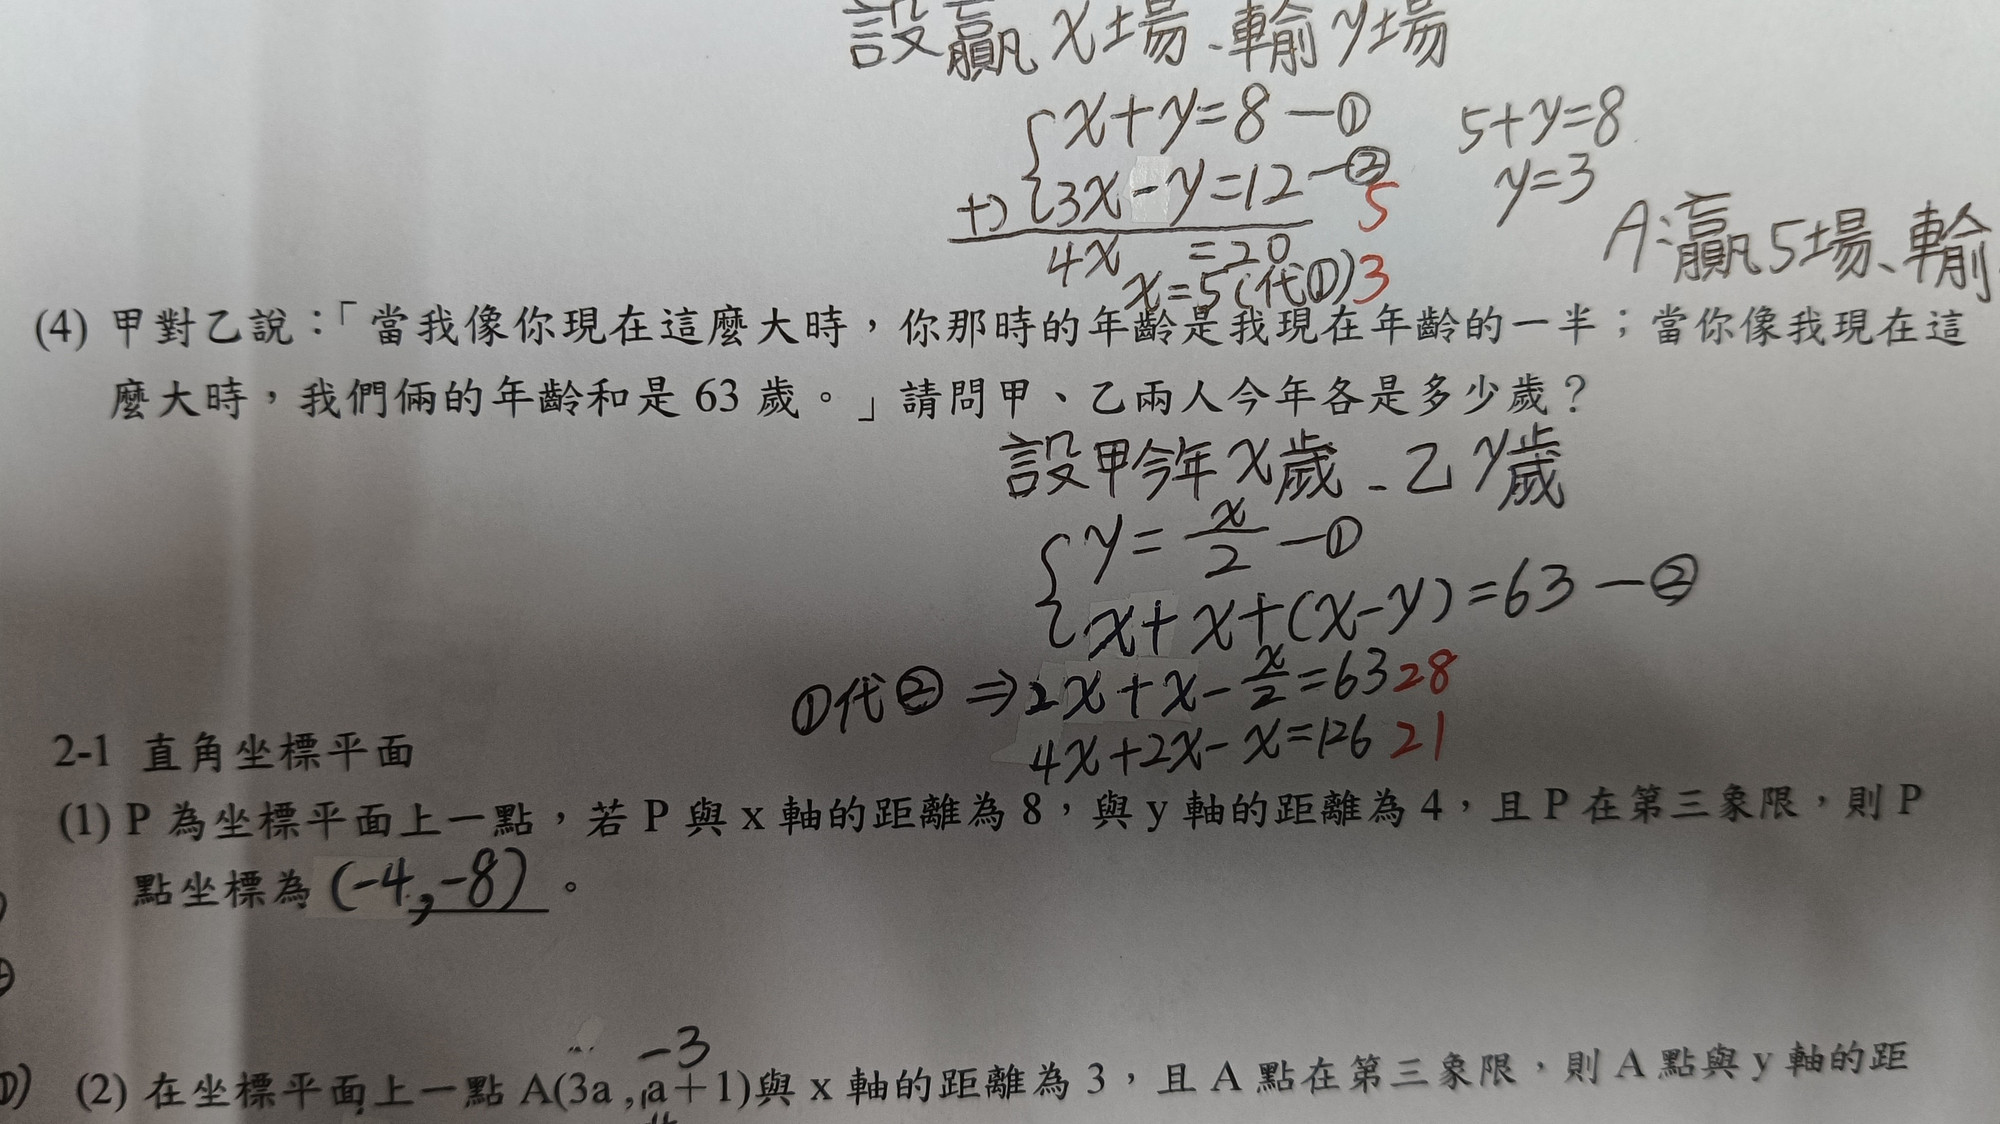 設贏x場、輸y場
x+y=8 —①
3x-y=12 —②
+)
4x =20
x=5(代①)
5
3
5+y=8
y=3
A:贏5場、輸
(4) 甲對乙說:「當我像你現在這麼大時,你那時的年齡是我現在年齡的一半;當你像我現在這
麼大時,我們倆的年齡和是 63 歲。」請問甲、乙兩人今年各是多少歲?
設甲今年x歲、乙y歲
y=x/2 —①
x+x+(x-y)=63 —②
①代② ⇒2x+x-x/2=63 28
4x+2x-x=126 21
2-1 直角坐標平面
(1) P 為坐標平面上一點,若 P 與 x 軸的距離為 8,與 y 軸的距離為 4,且 P 在第三象限,則 P
點坐標為 (-4,-8) 。
-3
(2) 在坐標平面上一點 A(3a,a+1)與 x 軸的距離為 3,且 A 點在第三象限,則 A 點與 y 軸的距